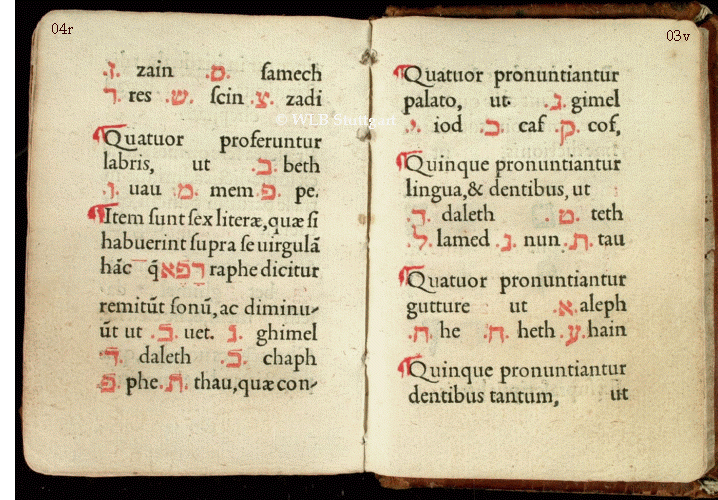 03v
¶Quatuor pronuntiantur
palato, ut .ג. gimel
.י. iod .כ. caf .ק. cof,
¶Quinque pronuntiantur
lingua,& dentibus, ut
.ד. daleth .ט. teth
.ל. lamed .נ. nun .ת. tau
¶Quatuor pronuntiantur
gutture ut .א. aleph
.ה. he .ח. heth .ע. hain
¶Quinque pronuntiantur
dentibus tantum, ut
04r
.ז. zain .ס. ſamech
.ר. res .ש. ſcin .צ. zadi
© WLB Stuttgart
¶Quatuor proferuntur
labris, ut .ב. beth
.ו. uau .מ. mem .פ. pe.
¶Item ſunt ſex literæ, quæ ſi
habuerint ſupra ſe uirgulā
hāc q̄ רפֿא raphe dicitur
remitūt ſonū, ac diminu-
ūt ut .בֿ. uet. .גֿ. ghimel
.דֿ. daleth .כֿ. chaph
.פֿ. phe .תֿ. thau, quæ con-